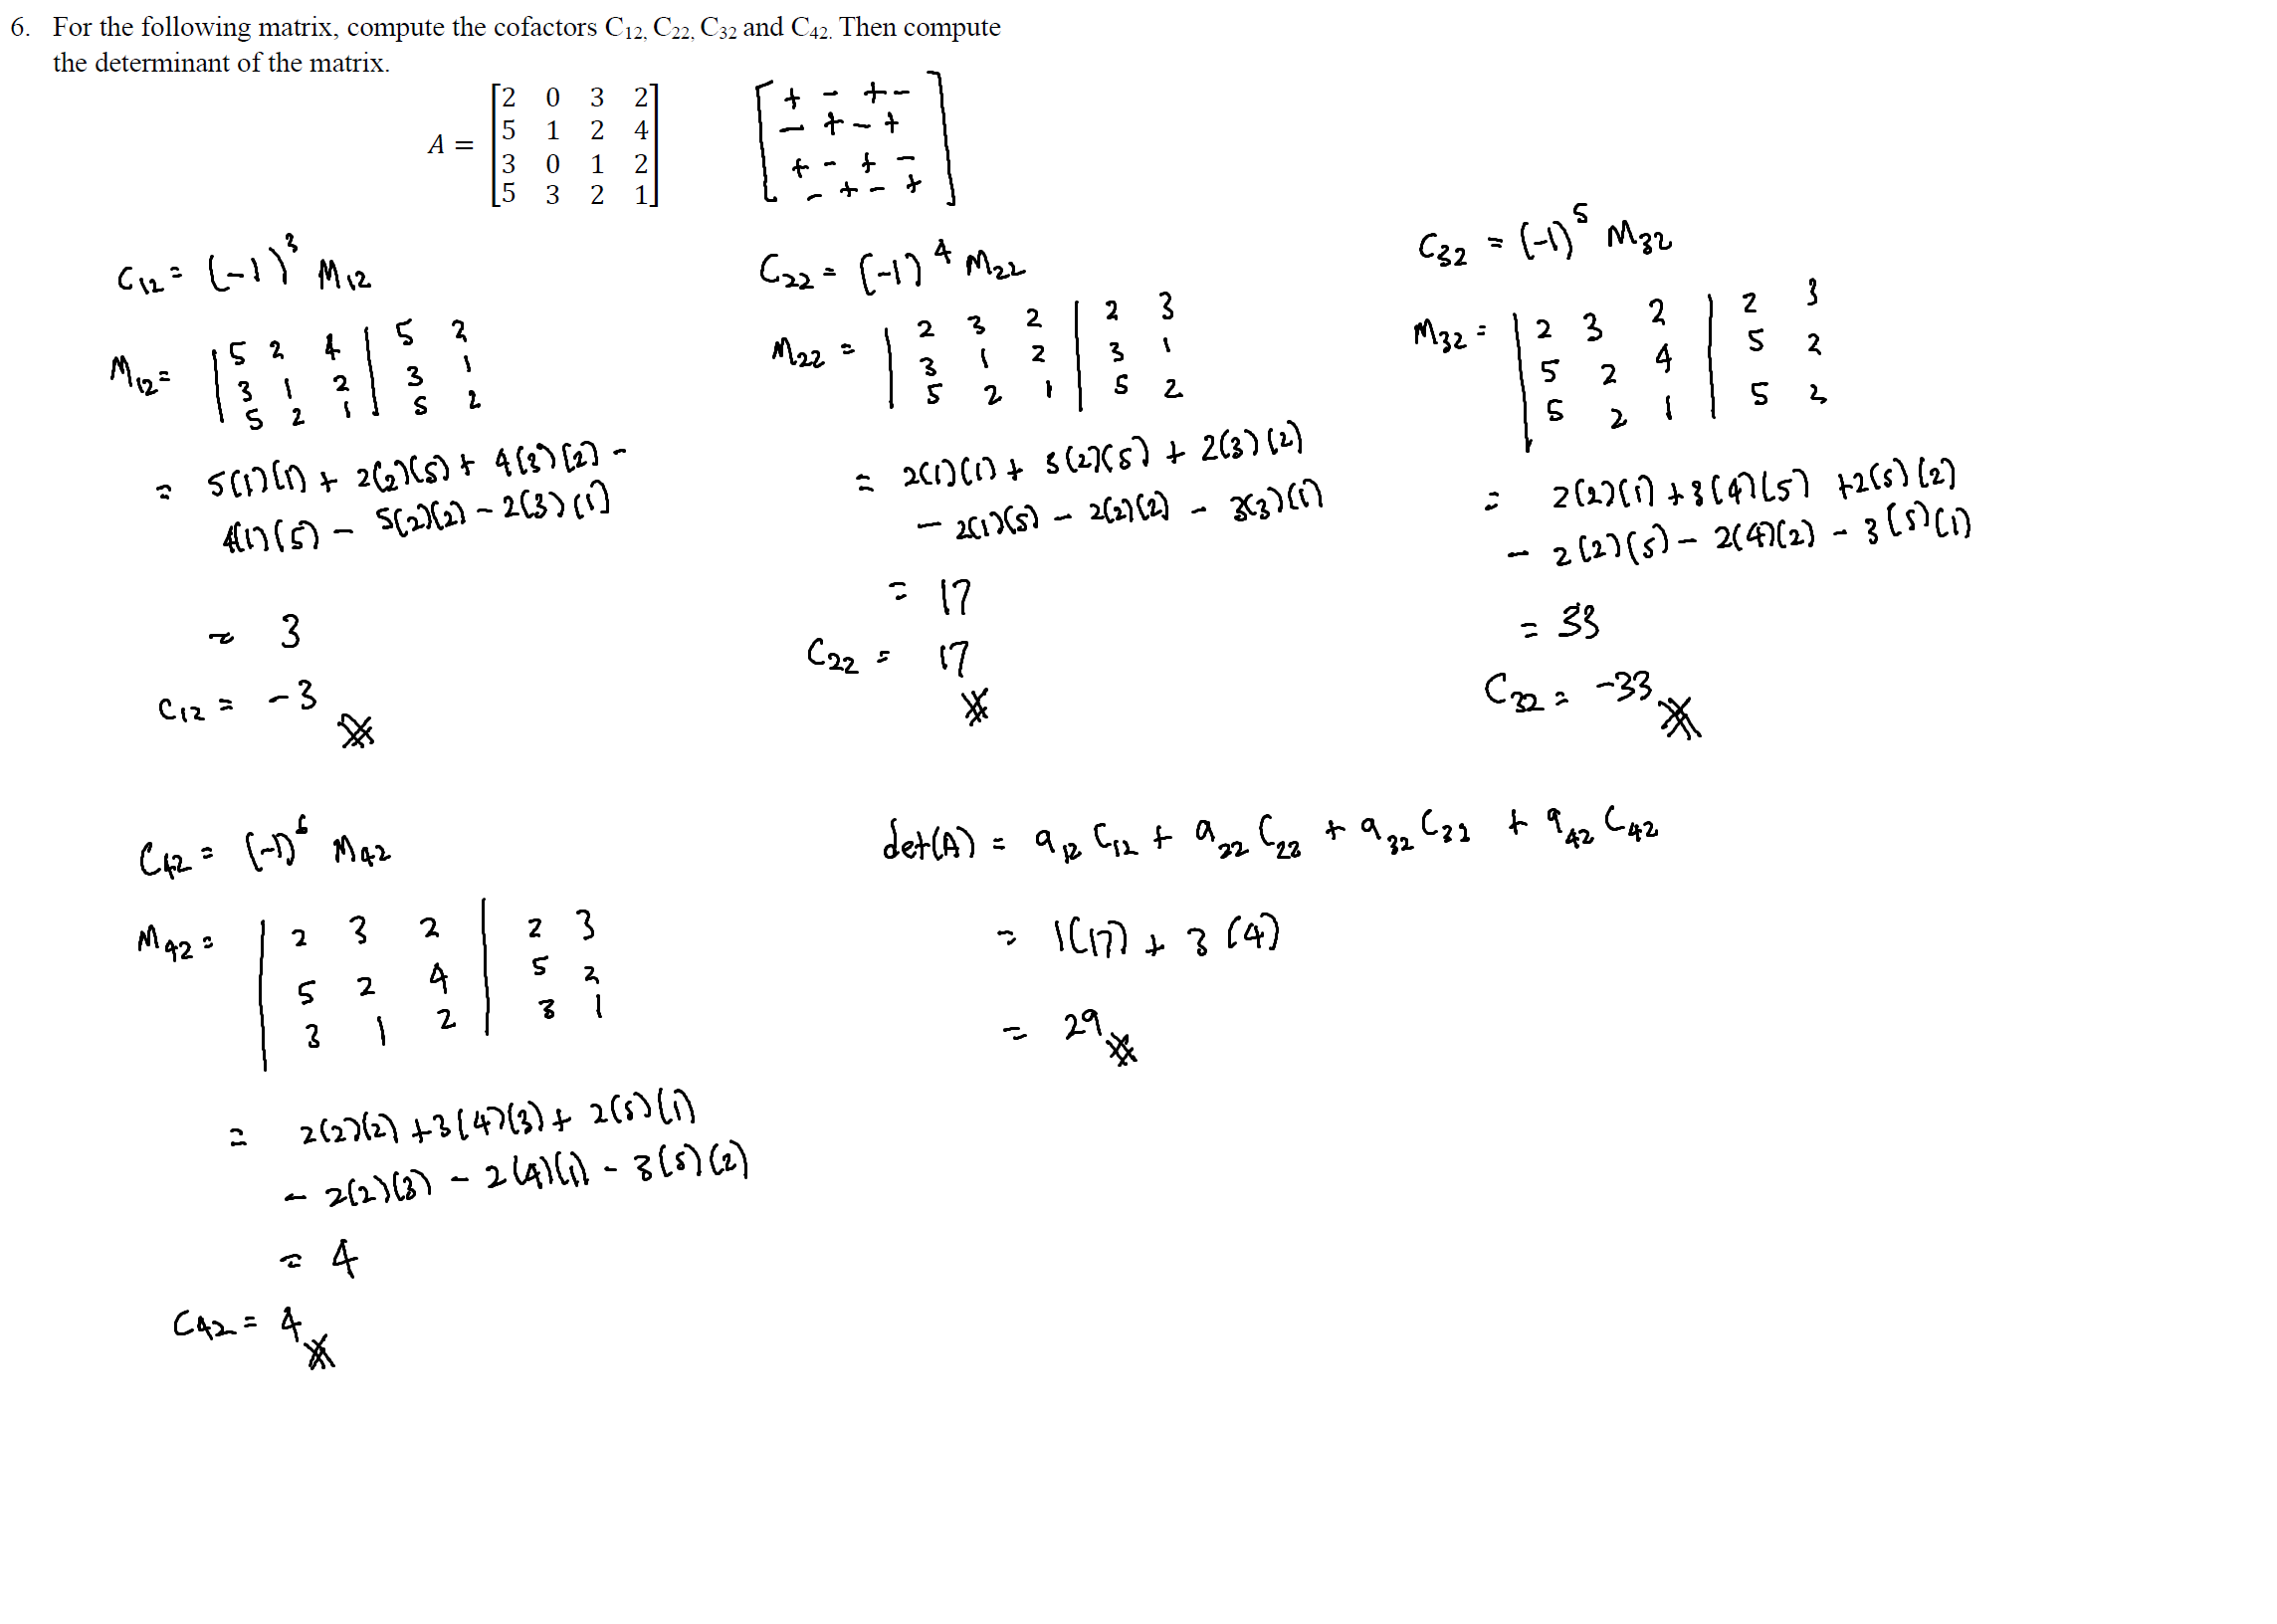 6. For the following matrix, compute the cofactors C12, C22, C32 and C42. Then compute
the determinant of the matrix.
A = [2 0 3 2
5 1 2 4
3 0 1 2
5 3 2 1]
[+ - + -
- + - +
+ - + -
- + - +]
C12 = (-1)^3 M12
M12 = | 5 2 4 | 5 2
3 1 2 | 3 1
5 2 1 | 5 2
= 5(1)(1) + 2(2)(5) + 4(3)(2) -
4(1)(5) - 5(2)(2) - 2(3)(1)
= 3
C12 = -3
C22 = (-1)^4 M22
M22 = | 2 3 2 | 2 3
3 1 2 | 3 1
5 2 1 | 5 2
= 2(1)(1) + 3(2)(5) + 2(3)(2)
- 2(1)(5) - 2(2)(2) - 3(3)(1)
= 17
C22 = 17
C32 = (-1)^5 M32
M32 = | 2 3 2 | 2 3
5 2 4 | 5 2
5 2 1 | 5 2
= 2(2)(1) + 3(4)(5) + 2(5)(2)
- 2(2)(5) - 2(4)(2) - 3(5)(1)
= 33
C32 = -33
C42 = (-1)^6 M42
M42 = | 2 3 2 | 2 3
5 2 4 | 5 2
3 1 2 | 3 1
= 2(2)(2) + 3(4)(3) + 2(5)(1)
- 2(2)(3) - 2(4)(1) - 3(5)(2)
= 4
C42 = 4
det(A) = a12 C12 + a22 C22 + a32 C32 + a42 C42
= 1(17) + 3(4)
= 29